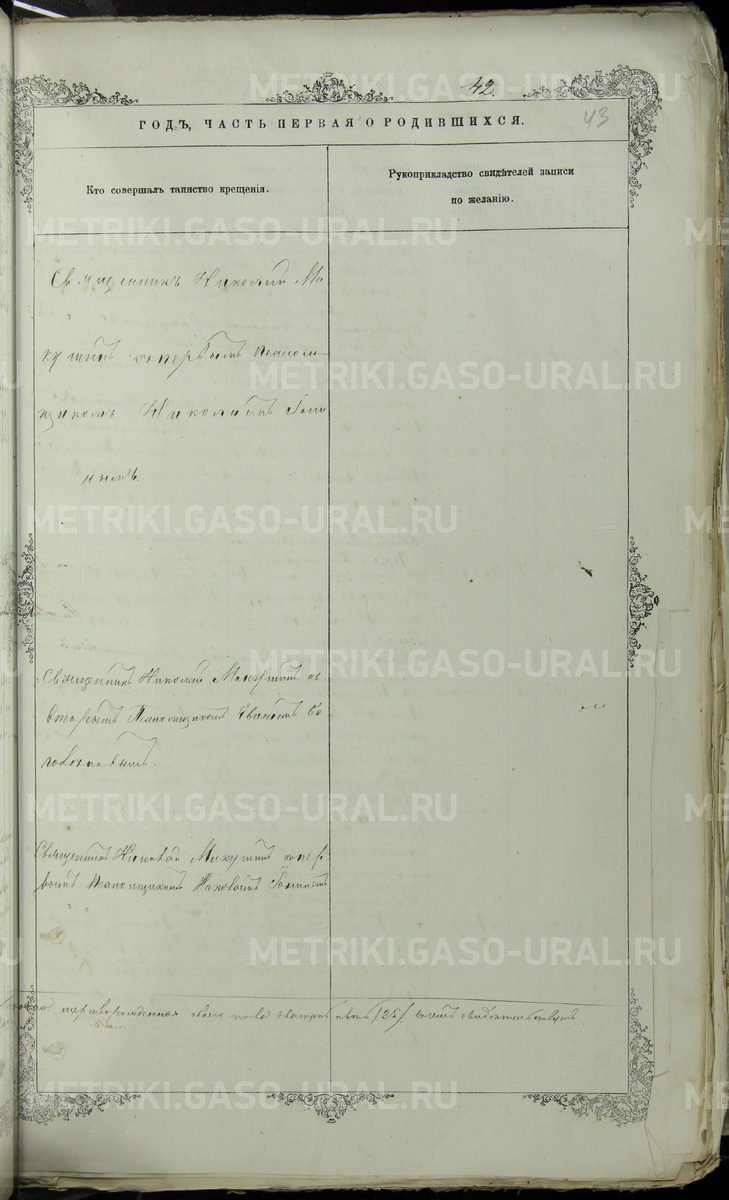 42.
43
ГОДЪ, ЧАСТЬ ПЕРВАЯ О РОДИВШИХСЯ.
Кто совершалъ таинство крещенія.
Рукоприкладство свидѣтелей записи
по желанію.
Священникъ Николай Ма
кушинъ съ первымъ псалом
щикомъ Николаемъ
Священникъ Николай Макушинъ со
вторымъ Псаломщикомъ
Священникъ Николай Макушинъ съ пер
вымъ Псаломщикомъ
мертворожденная обоего пола двадцать пять /25/. въ чемъ свидѣтельствуемъ
METRIKI.GASO-URAL.RU